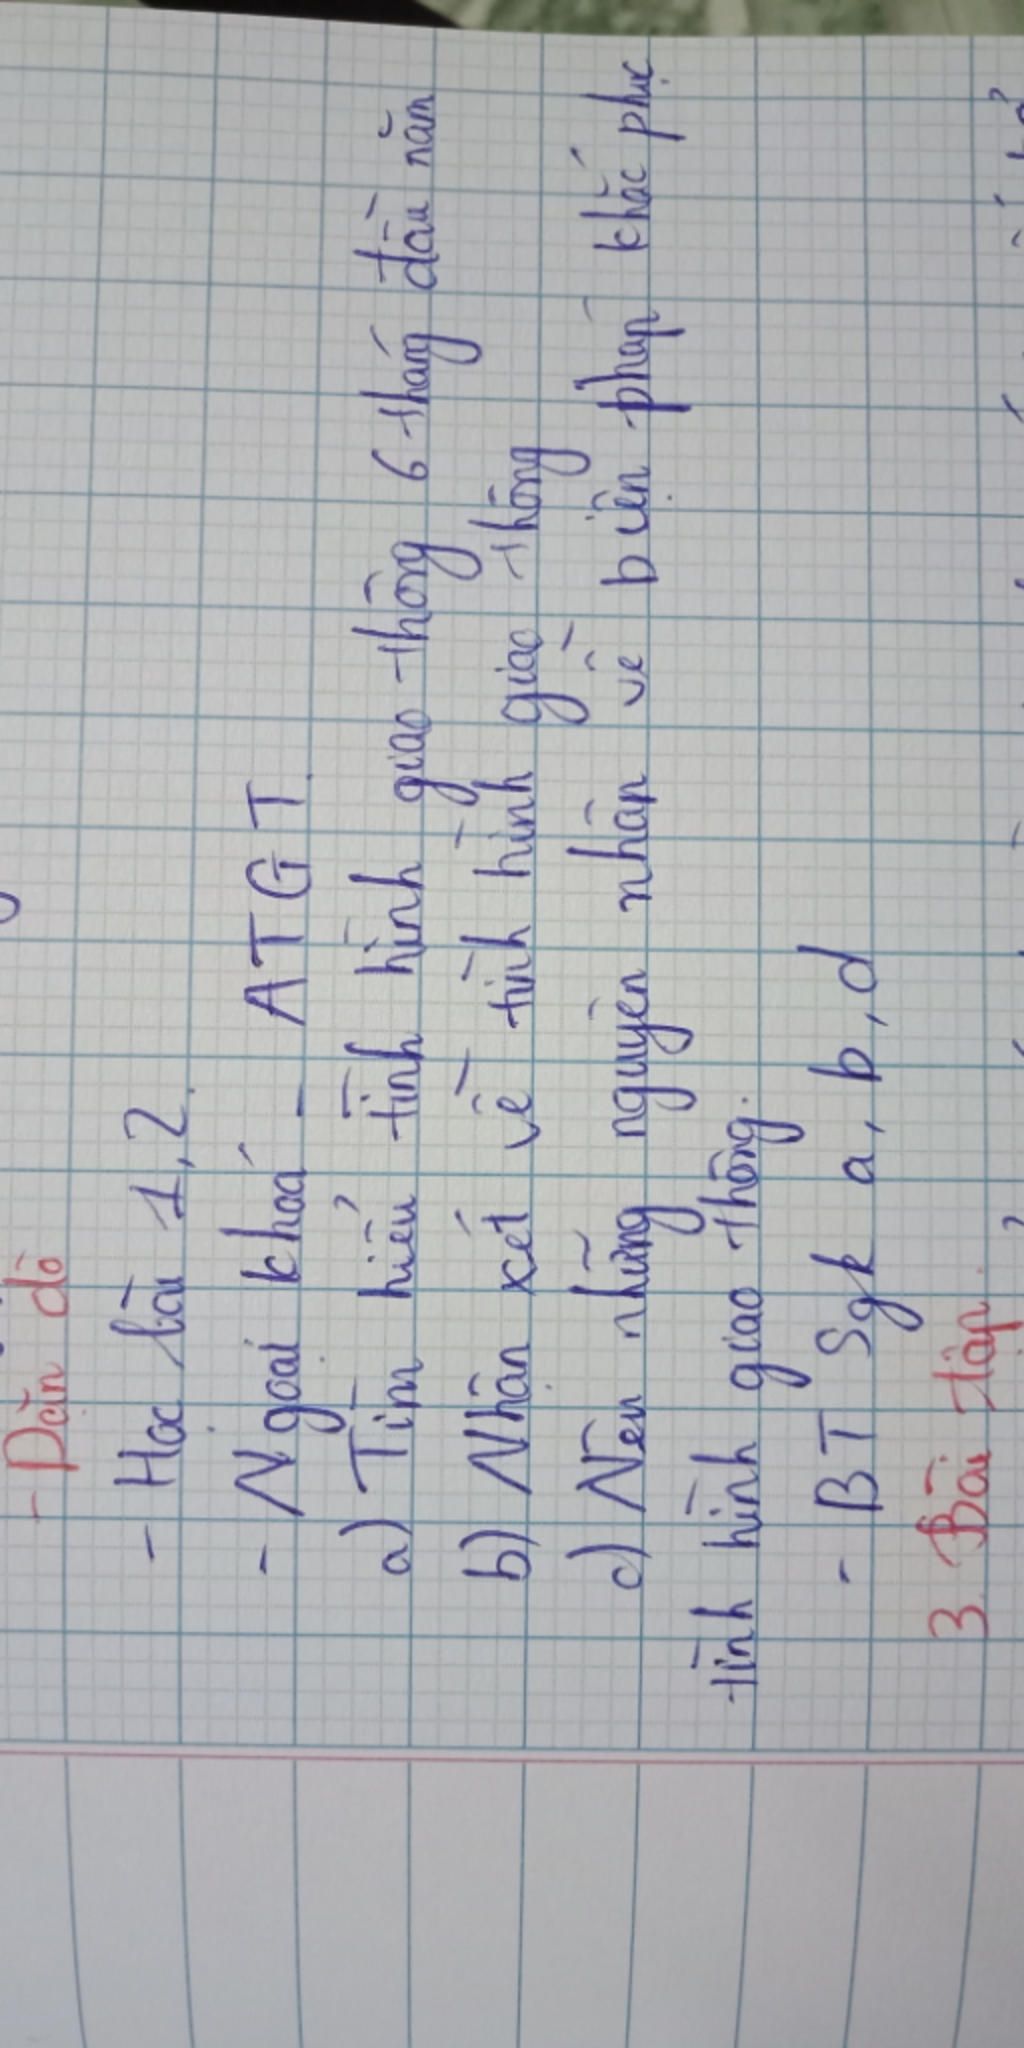 - Dặn dò
- Học bài 1,2.
- Ngoại khoá - ATGT.
a) Tìm hiểu tình hình giao thông 6 tháng đầu năm
b) Nhận xét về tình hình giao thông
c) Nêu những nguyên nhân về biện pháp khắc phục
tình hình giao thông.
- BT Sgk a, b, d
3. Bài tập.